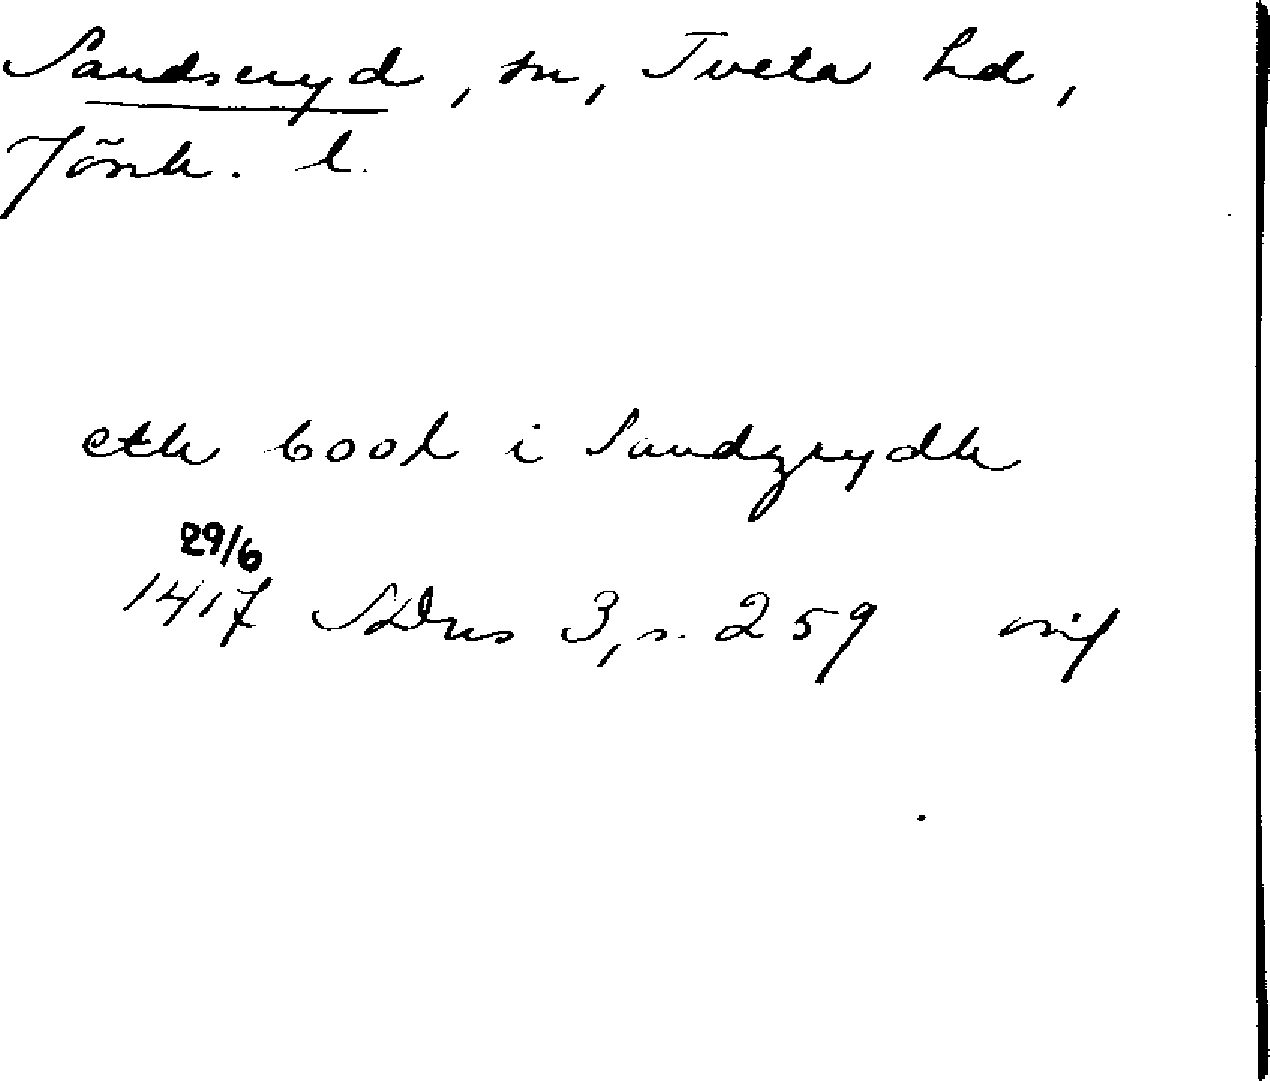 Sandseryd, sn, Tveta hd,
Jönk. l.
eth bool i Sandzrydh
29/6
1417 SDns 3, s. 259 orig